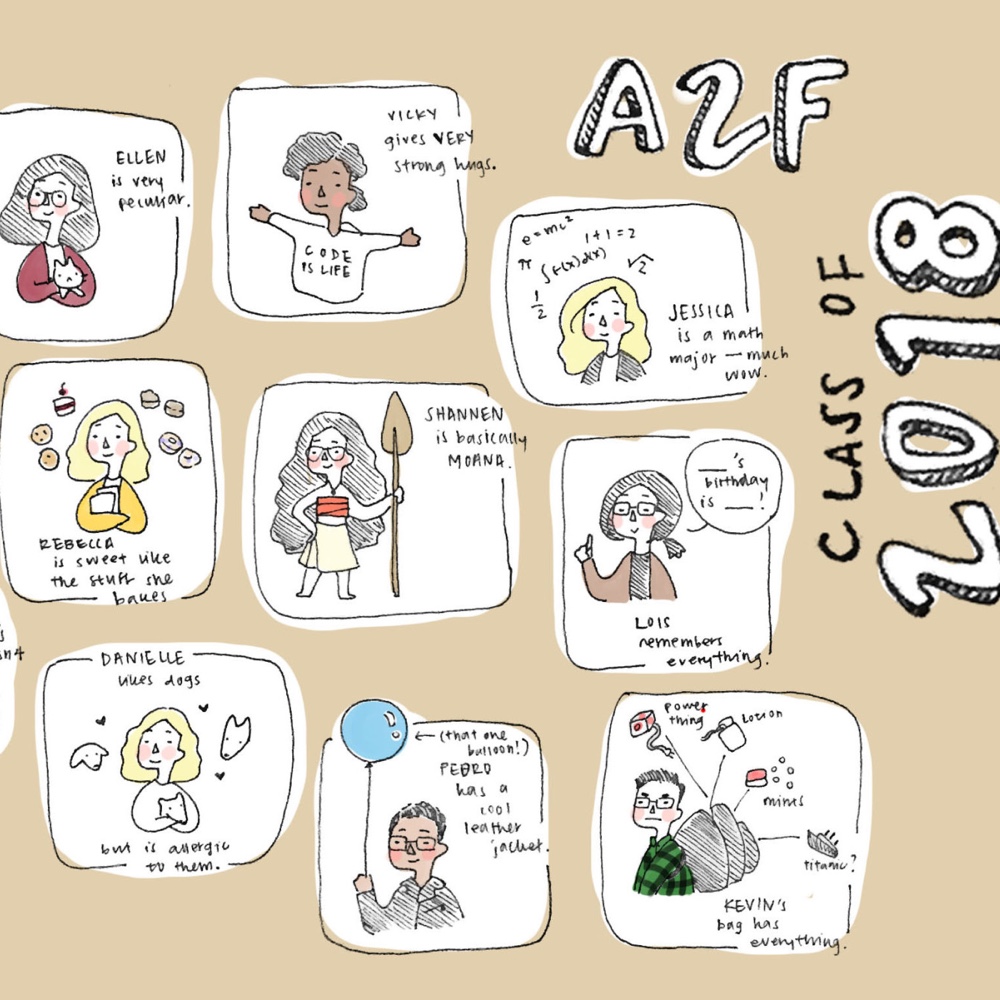 A2F
CLASS OF
2018
ELLEN
is very
peculiar.
VICKY
gives VERY
strong hugs.
CODE
IS LIFE
e=mc²
1+1=2
π
∫f(x)d(x)
√2
1/2
JESSICA
is a math
major — much
wow.
REBECCA
is sweet like
the stuff she
bakes
SHANNEN
is basically
MOANA.
___'s
birthday
is ___!
LOIS
remembers
everything.
DANIELLE
likes dogs
but is allergic
to them.
(that one
balloon!)
PEDRO
has a
cool
leather
jacket.
power
thing
Lotion
mints
titanic?
KEVIN'S
bag has
everything.